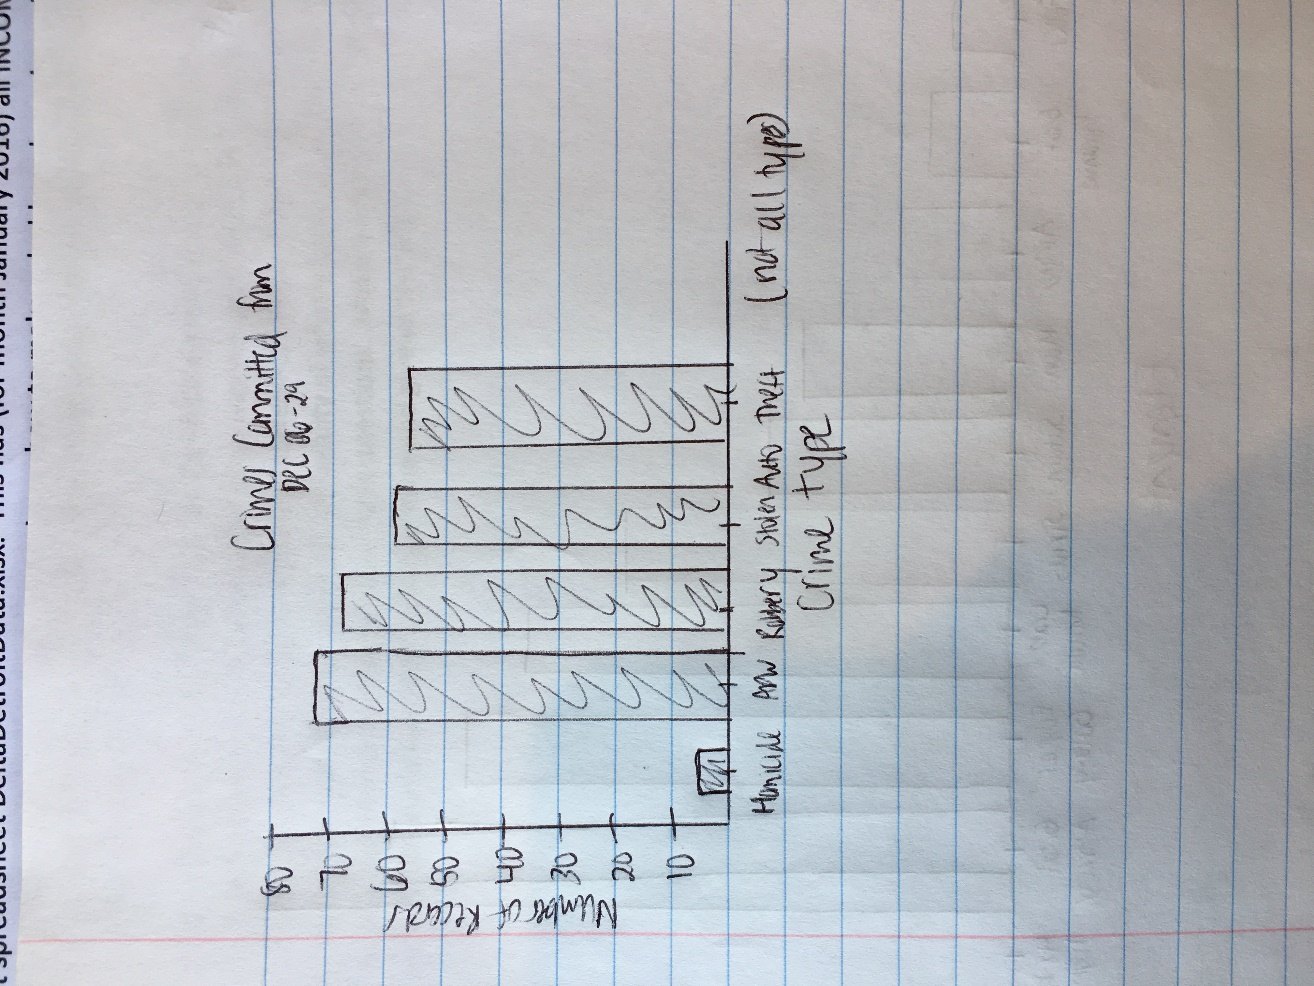 spreadsheet DeltaDetroitData.xlsx. This has (for month January 2016) all INCOM
Crimes Committed from
DEC 06-29
80
70
60
50
40
30
20
10
Number of Records
Homicide ADW Robbery Stolen Auto Theft (not all types)
Crime type